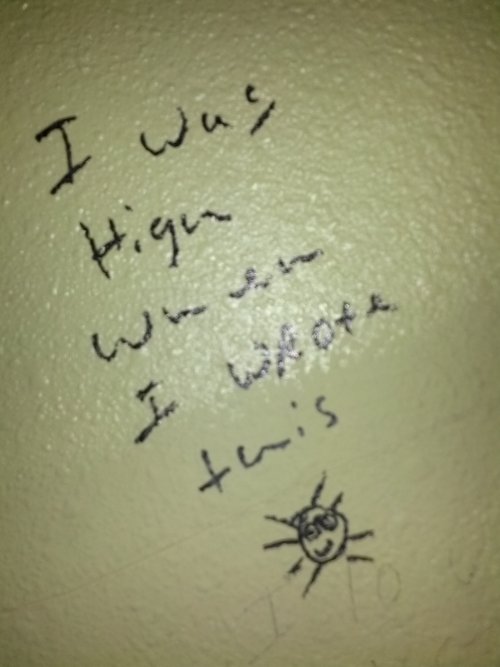 I was
High
When
I WROte
this